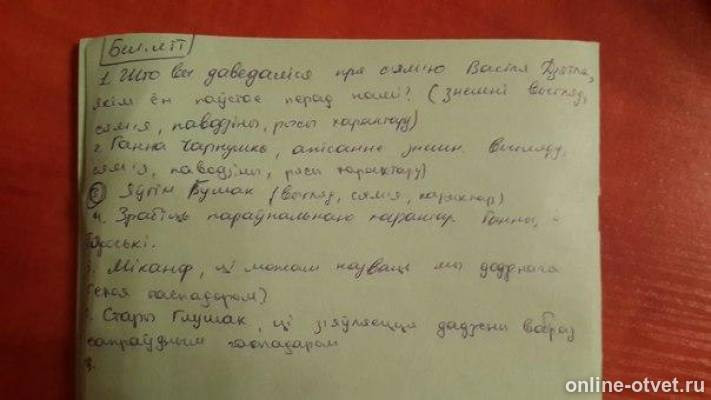 Бел. літ
1. Што вы даведаліся пра сям'ю Васіля Дзятла,
якім ён паўстае перад намі? (знешні выгляд,
сям'я, паводзіны, рысы характару)
2. Ганна Чарнушка, апісанне знешн. выгляду,
сям'я, паводзіны, рысы характару)
3 Яўхім Глушак (выгляд, сям'я, характар)
4. Зрабіць параўнальную характар. Ганны, -
5. Міканор, ці можам назваць мы дадзенага
героя гаспадаром)
Стары Глушак, ці з'яўляецца дадзены вобраз
сапраўдным гаспадаром
online-otvet.ru